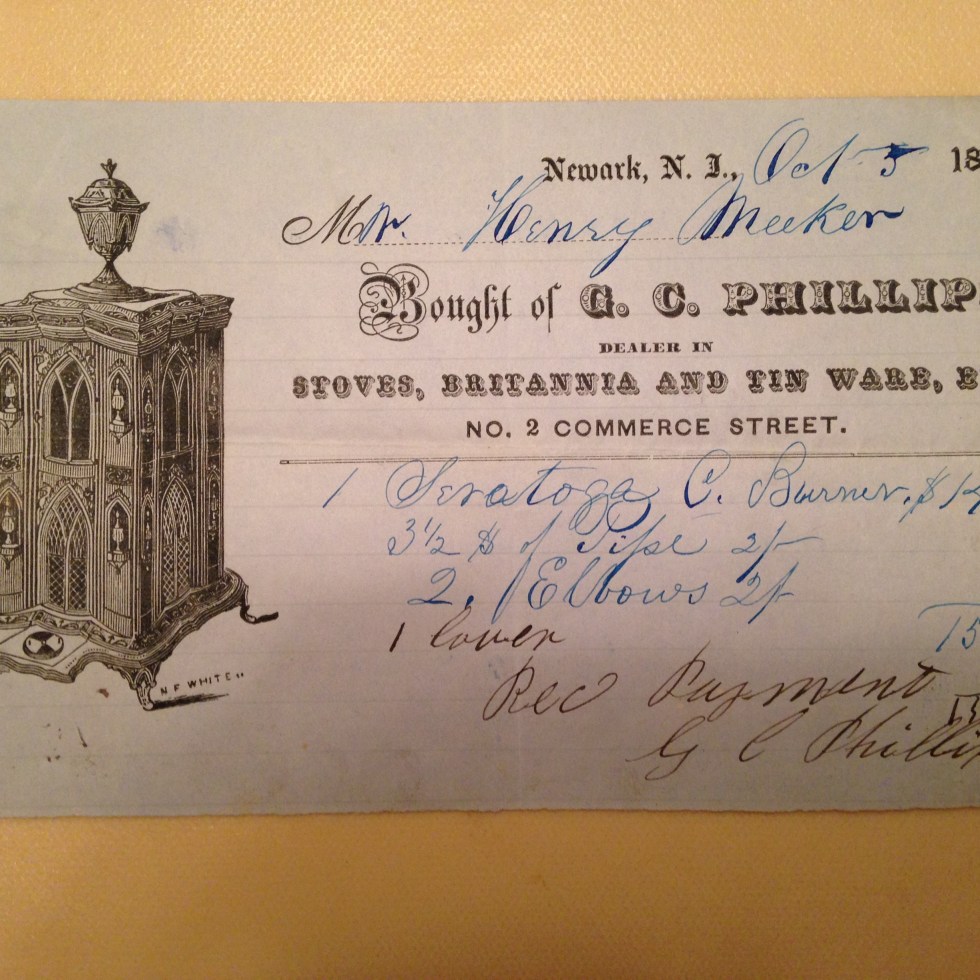 Newark, N. J., Oct 5 18
Mr. Henry Meeker
Bought of G. C. PHILLIP
DEALER IN
STOVES, BRITANNIA AND TIN WARE, E
NO. 2 COMMERCE STREET.
1 Seratoga C. Burner, $ 14
3 1/2 $ of Pipe 2/-
2. Elbows 2/-
1 cover 15
Rec Payment
G C Phillip
N F WHITE